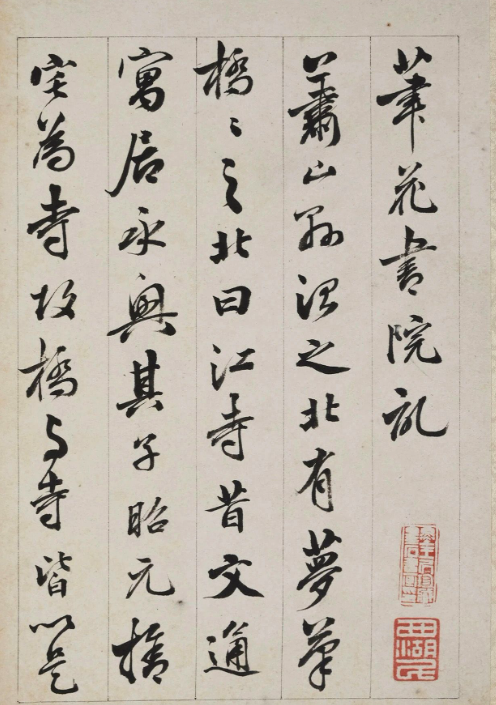 筆花書院記
蕭山縣治之北有夢筆
橋〻之北曰江寺昔文通
寓居永興其子昭元捨
宅為寺故橋与寺皆以是
西湖